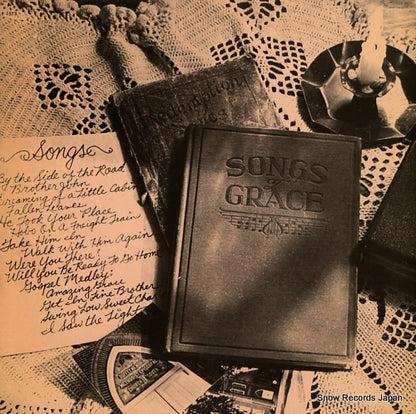 Songs
By the Side of the Road
Brother John
Dreaming of a Little Cabin
Fallen Leaves
He Took Your Place
Hobo On A Freight Train
Take Him In
Walk With Him Again
Were You There?
Will You Be Ready To Go Home
Gospel Medley:
Amazing Grace
Get In Line Brother
Swing Low, Sweet Chariot
I Saw the Light
Redemption
Songs
SONGS
of
GRACE
Snow Records Japan